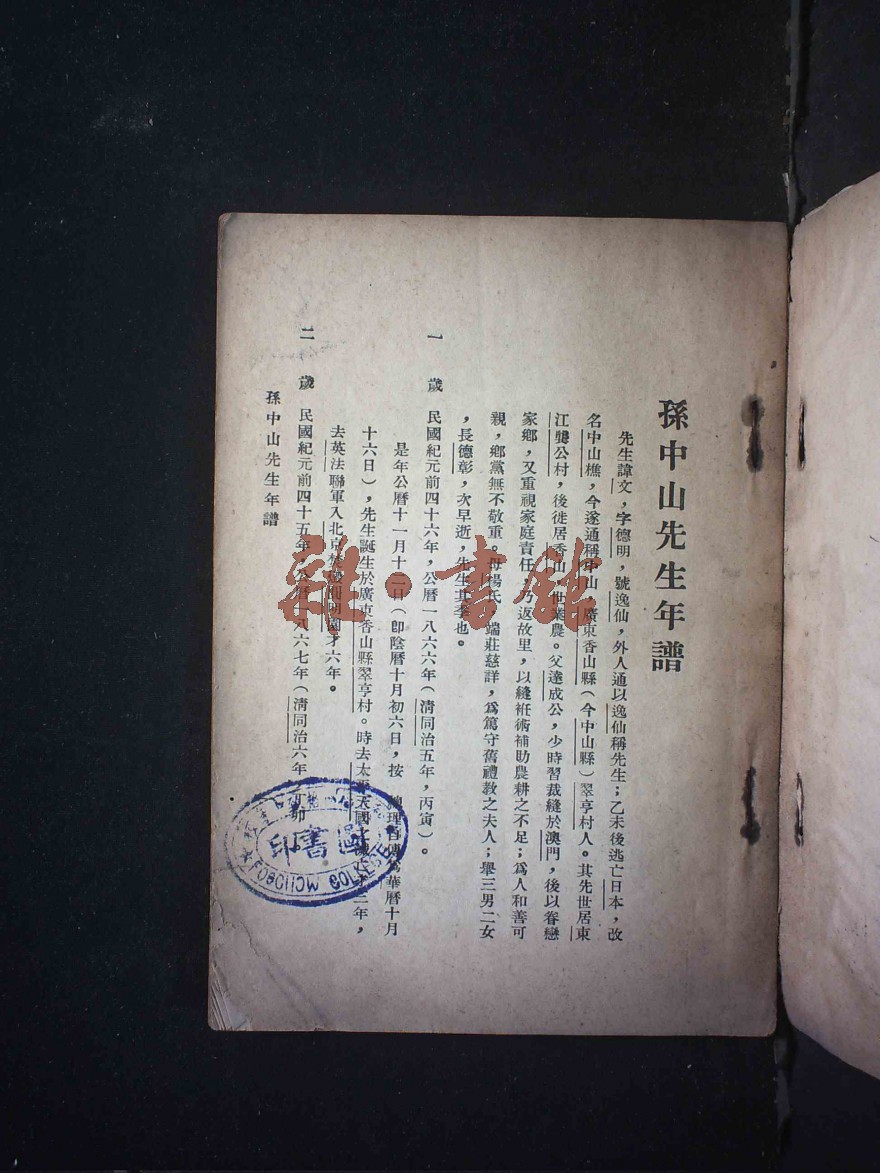 孫中山先生年譜
先生諱文，字德明，號逸仙，外人通以逸仙稱先生；乙未後逃亡日本，改
名中山樵，今遂通稱中山，廣東香山縣（今中山縣）翠亨村人。其先世居東
江龔公村，後徙居香山，世業農。父達成公，少時習裁縫於澳門，後以眷戀
家鄉，又重視家庭責任，乃返故里，以縫袵術補助農耕之不足；爲人和善可
親，鄉黨無不敬重。母楊氏，端莊慈詳，爲篤守舊禮教之夫人；舉三男二女
，長德彰，次早逝，先生其季也。
一 歲 民國紀元前四十六年，公曆一八六六年（清同治五年，丙寅）。
是年公曆十一月十二日（卽陰曆十月初六日，按 總理自傳爲華曆十月
十六日），先生誕生於廣東香山縣翠亨村。時去太平天國之 二年，
去英法聯軍入北京 明園才六年。
二 歲 民國紀元前四十五年，公曆一八六七年（清同治六年
孫中山先生年譜
雜·書館
書印
FOOCHOW COLLEGE